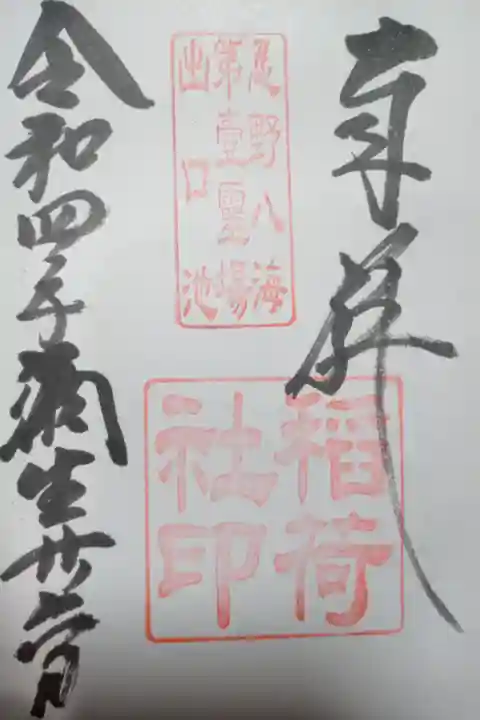 奉拝
忍野八海
第壹靈場
出口池
稲荷
社印
令和四年弥生廿六日